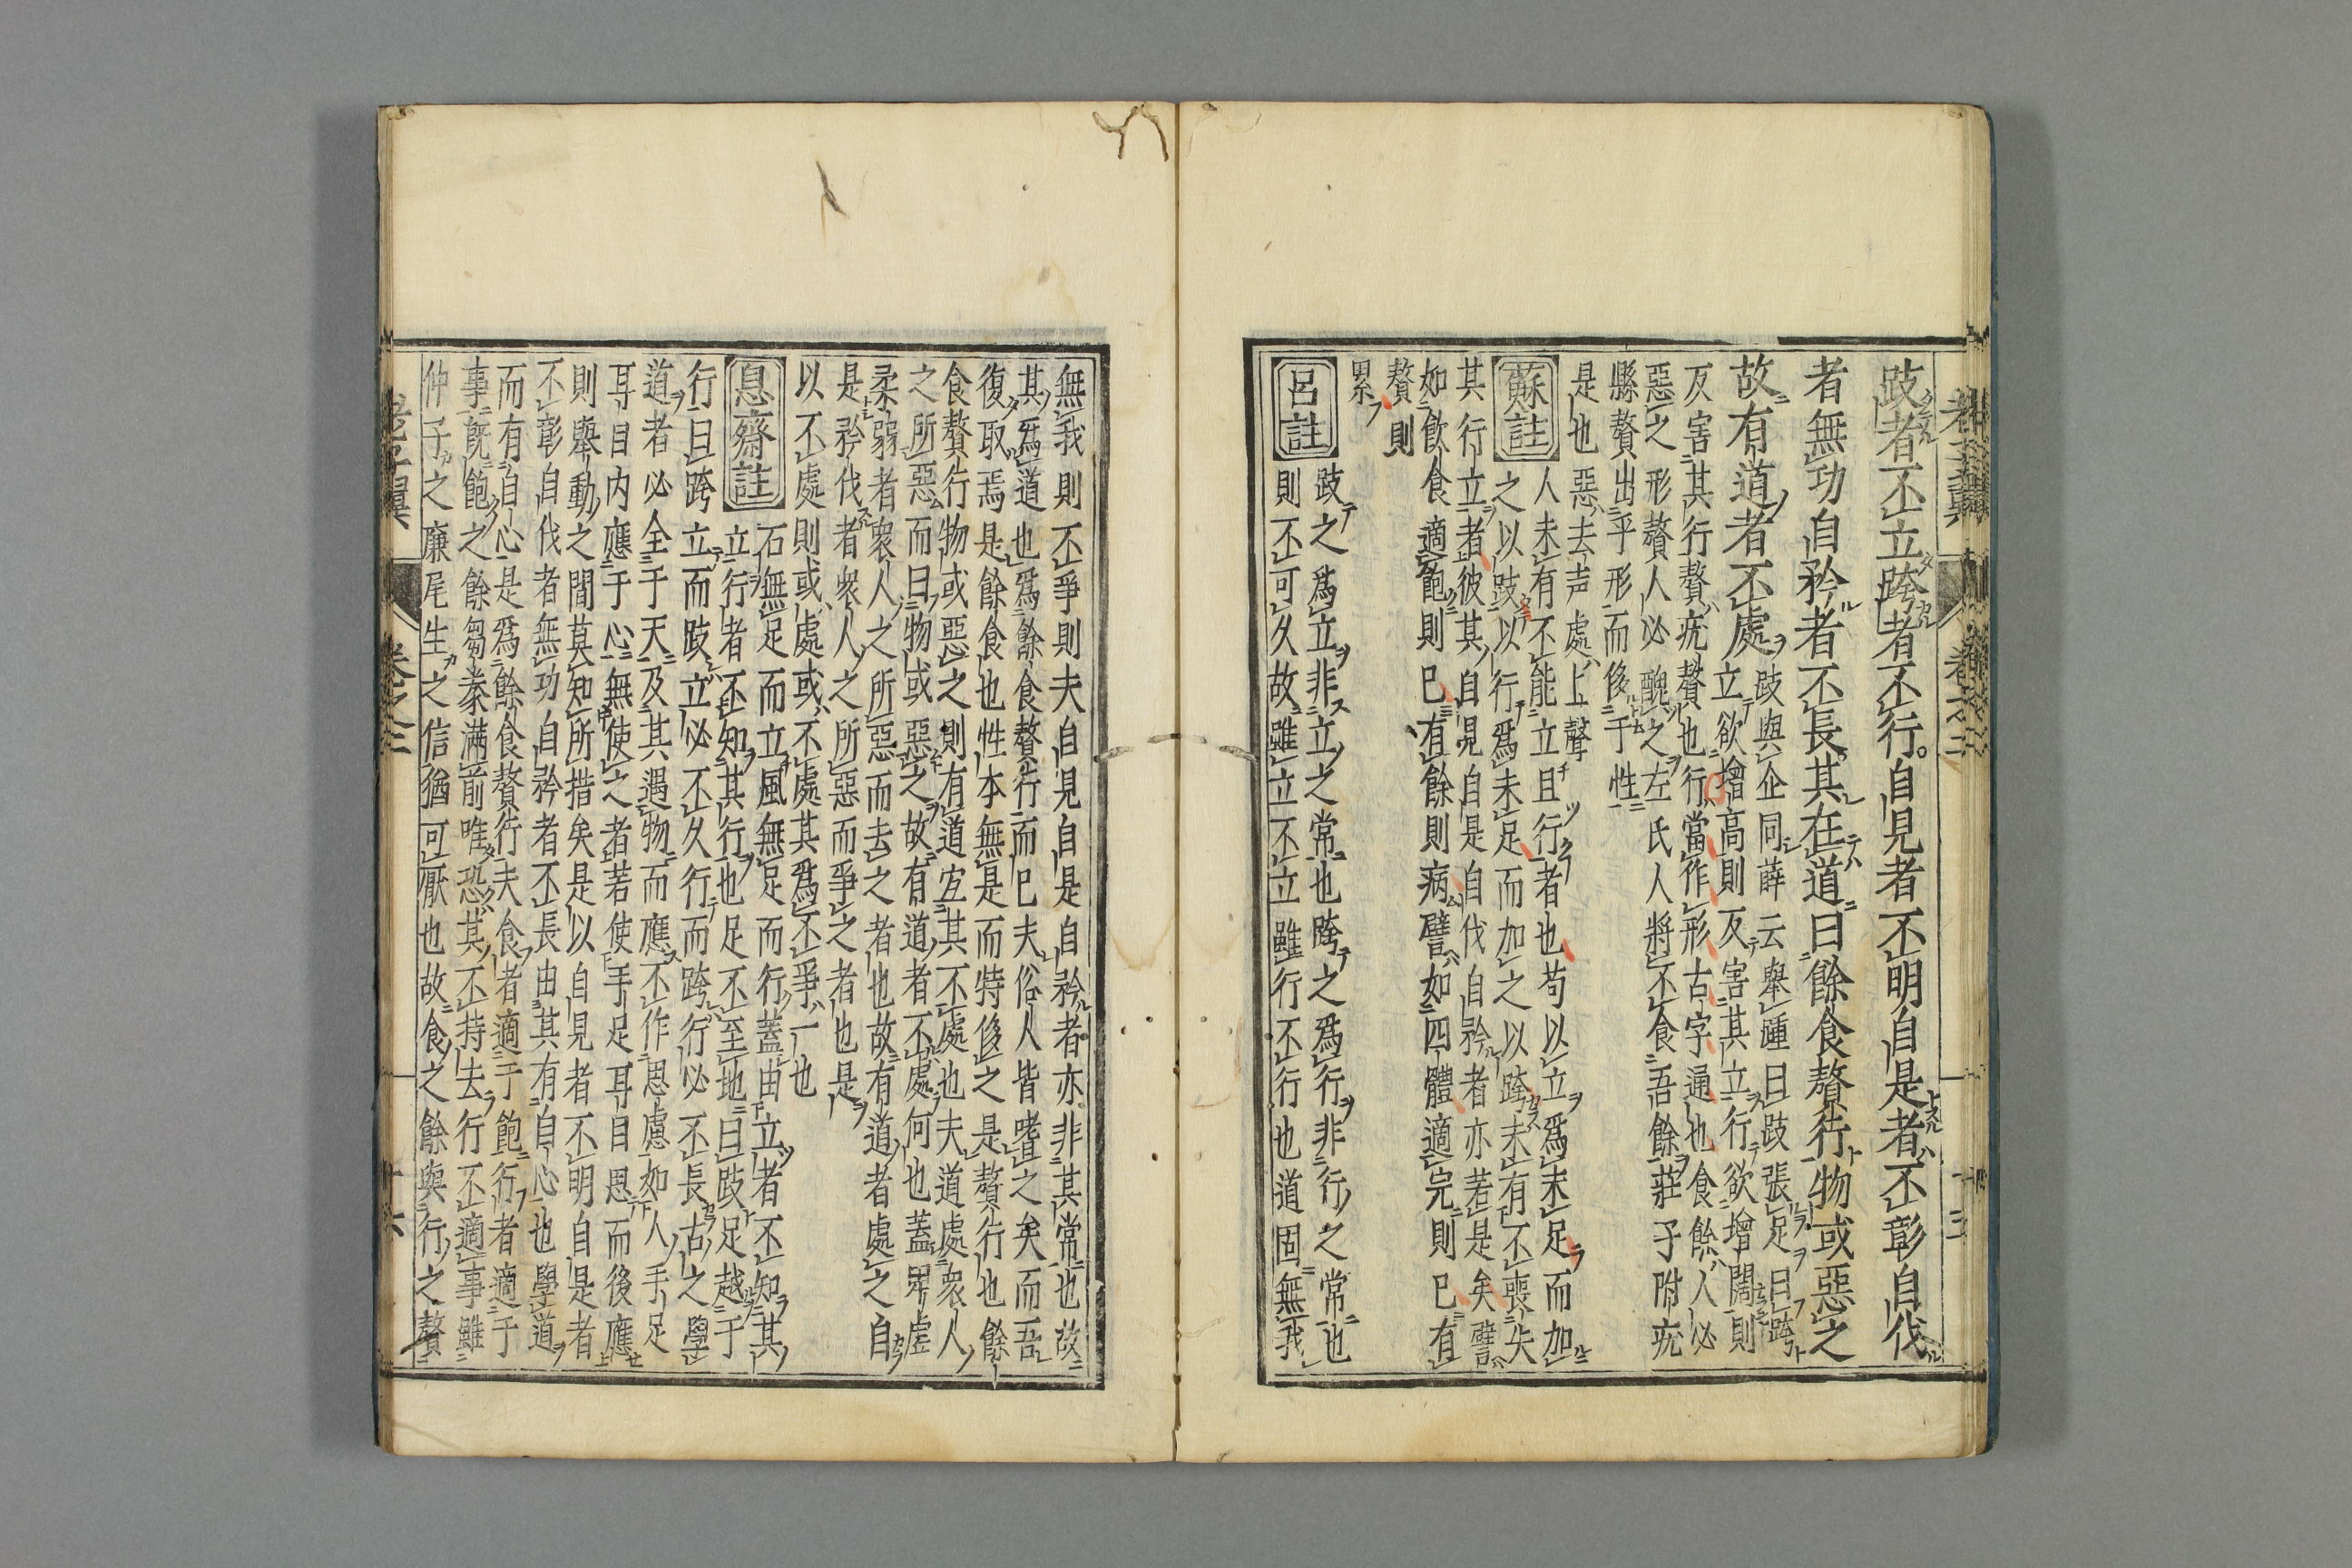 跂者不立跨者不行。自見者不明自是者不彰自伐
者無功自矜者不長。其在道曰餘食贅行物或惡之
故有道者不處
跂與企同薛云舉踵曰跂張足曰跨
立欲增高則反害其立行欲增闊則
反害其行贅疣贅也行當作形古字通也食餘人必
惡之形贅人必醜之左氏人將不食吾餘莊子附疣
縣贅出乎形而侈于性
是也惡去声處上聲
蘇註
人未有不能立且行者也苟以立爲未足而加
之以跂以行爲未足而加之以跨未有不喪失
其行立者彼其自見自是自伐自矜者亦若是矣譬
如飲食適飽則已有餘則病譬如四體適完則已有
贅則
累
呂註
跂之爲立非立之常也跨之爲行非行之常也
則不可久故雖立不立雖行不行也道固無我
無我則不爭則夫自見自是自矜者亦非其常也故
其爲道也爲餘食贅行而已夫俗人皆嗜之矣而吾
復取焉是餘食也性本無是而特侈之是贅行也餘
食贅行物或惡之則有道宜其不處也夫道處衆人
之所惡而曰物或惡之故有道者不處何也蓋卑虚
柔弱者衆人之所惡而去之者也故有道者處之自
是矜伐者衆人之所惡而爭之者也是
以不處則或處或不處其爲不爭一也
息齋註
石無足而立風無足而行蓋由立者不知其
立行者不知其行也足不至地曰跂足越于
行曰跨立而跂立必不久行而跨行必不長古之學
道者必全于天及其遇物而應不作思慮如人手足
耳目内應于心無使之者若使手足耳目思而後應
則舉動之間莫知所措矣是以自見者不明自是者
不彰自伐者無功自矜者不長由其有自心也學道
而有自心是爲餘食贅行夫食者適于飽行者適于
事既飽之餘芻豢滿前唯恐其不持去行不適事雖
仲子之廉尾生之信猶可厭也故食之餘與行之贅